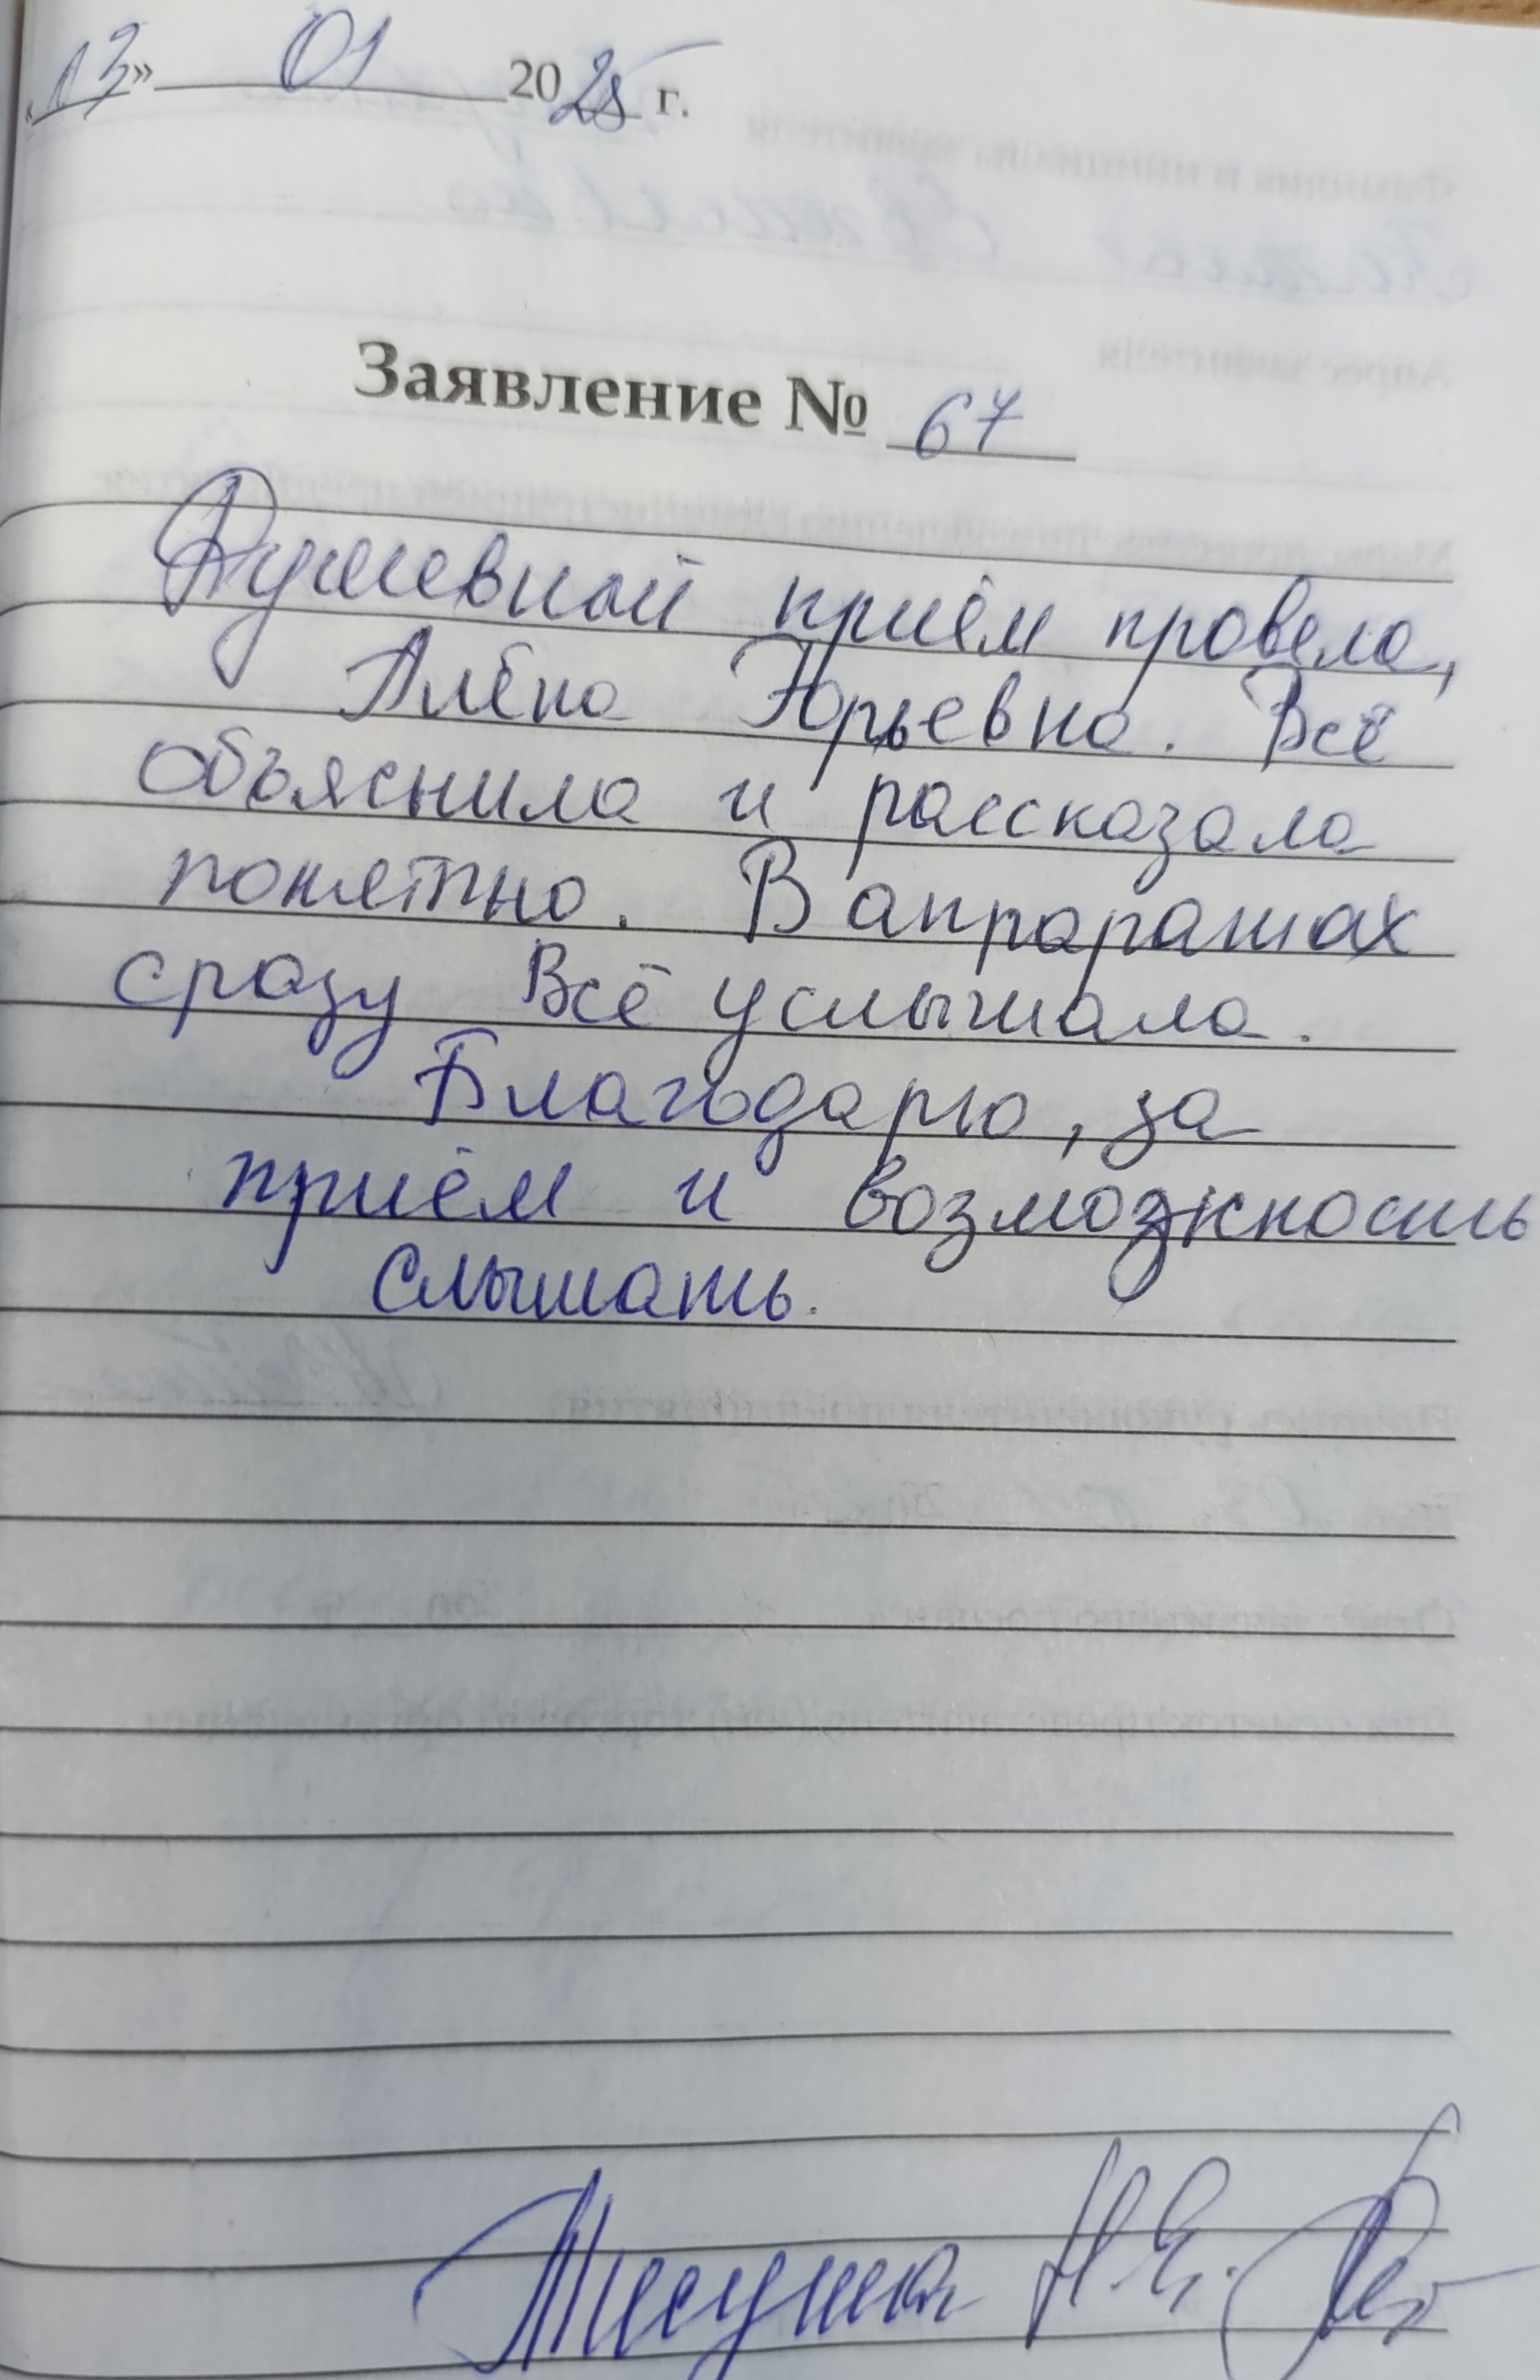 «13» 01 2025 г.
Заявление № 67
Душевный приём провела,
Алёна Юрьевна. Всё
объяснила и рассказала
понятно. В апраратах
сразу всё услышала.
Благодарю, за
приём и возможность
слышать.
Н.Е.